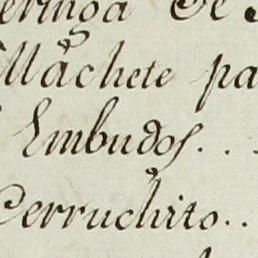 eringa de
Machete pa
Embudos...
Cerruchito..